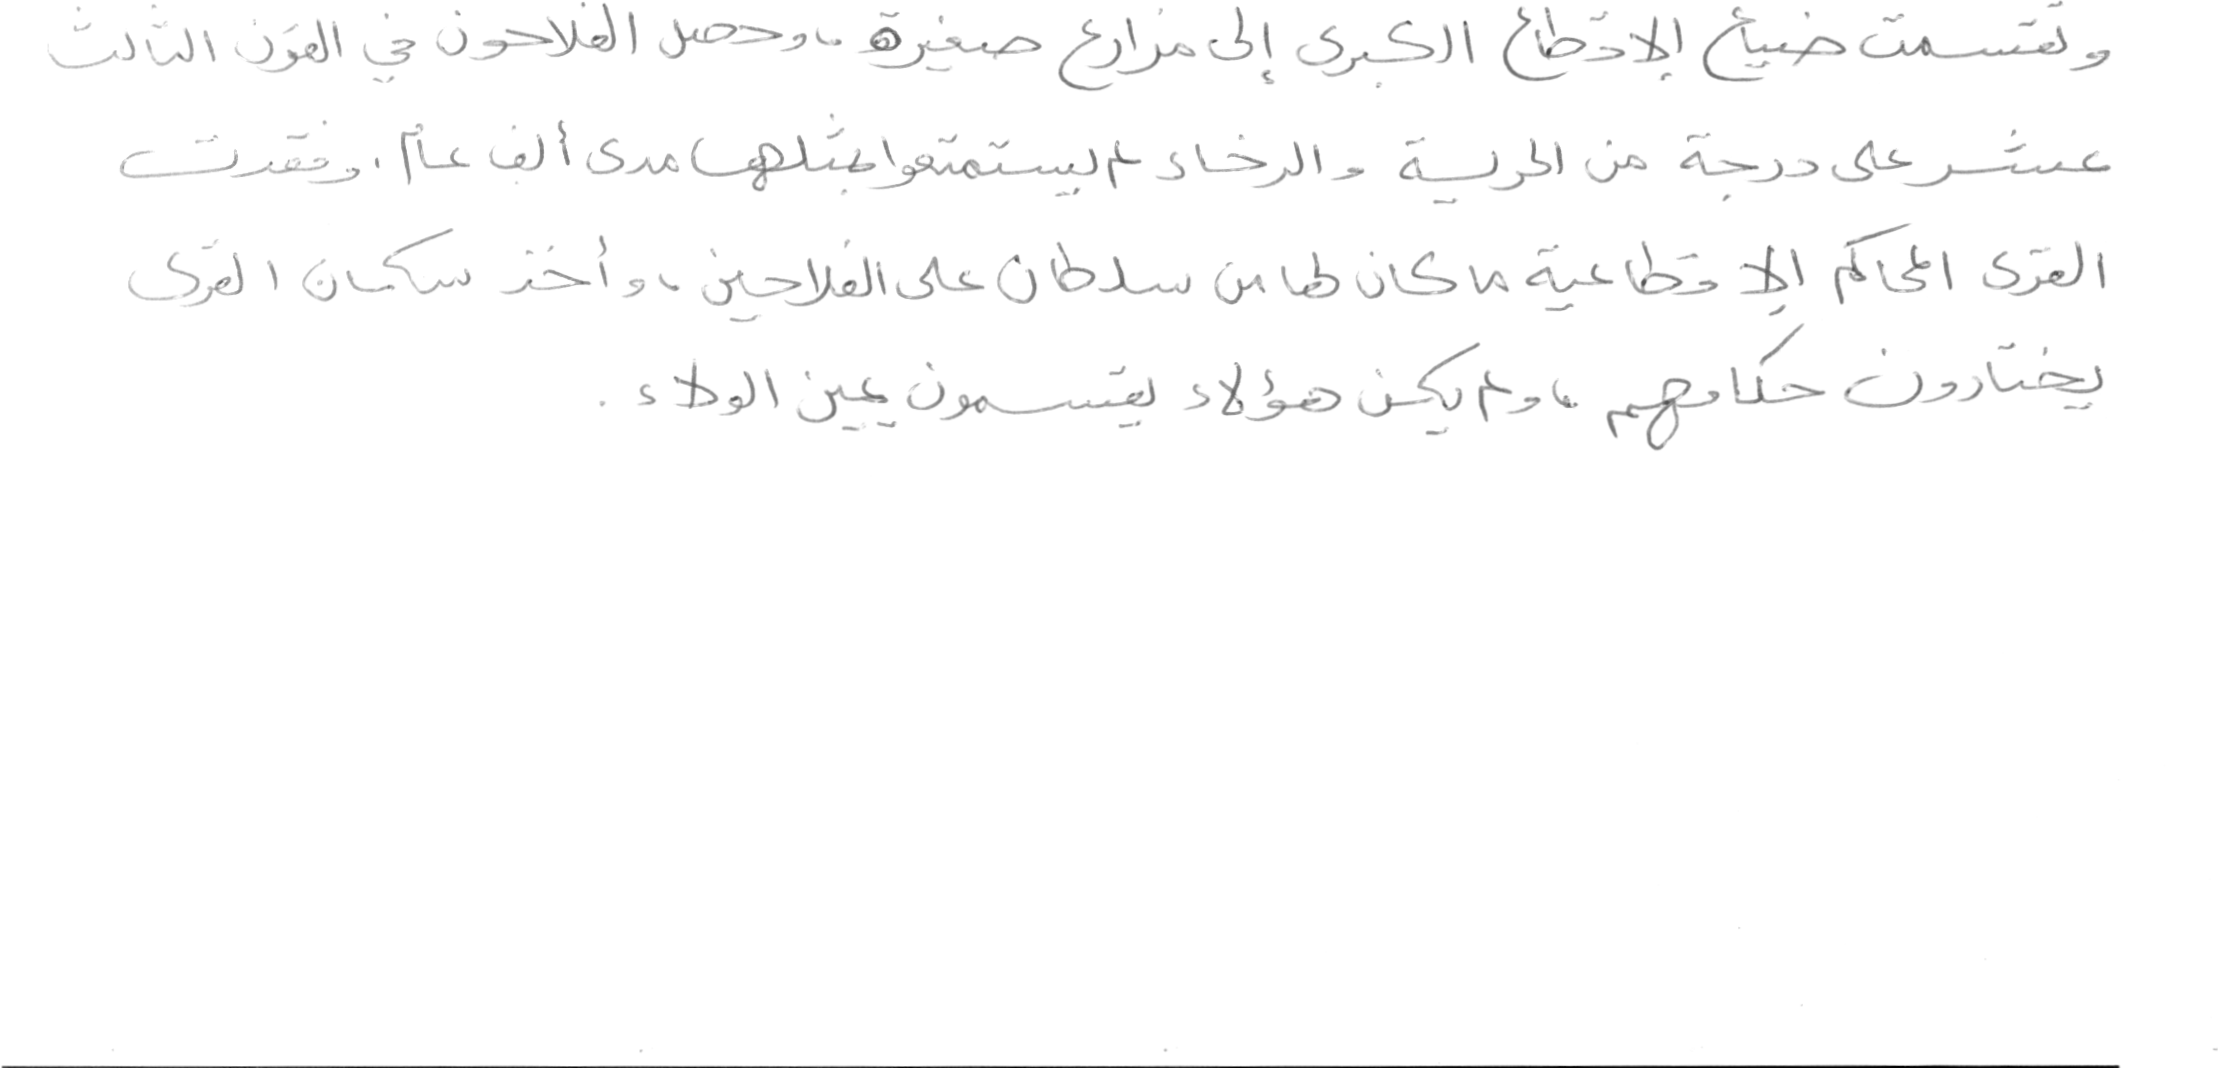 وتقسمت ضياع الإقطاع الكبرى إلى مزارع صغيرة، وحصل الفلاحون في القرن الثالث
عشر على درجة من الحرية والرخاء لم يستمتعوا بمثلها مدى ألف عام. وفقدت
القرى المحاكم الإقطاعية ما كان لها من سلطان على الفلاحين، وأخذ سكان القرى
يختارون حكامهم، ولم يكن هؤلاء يقسمون يمين الولاء.